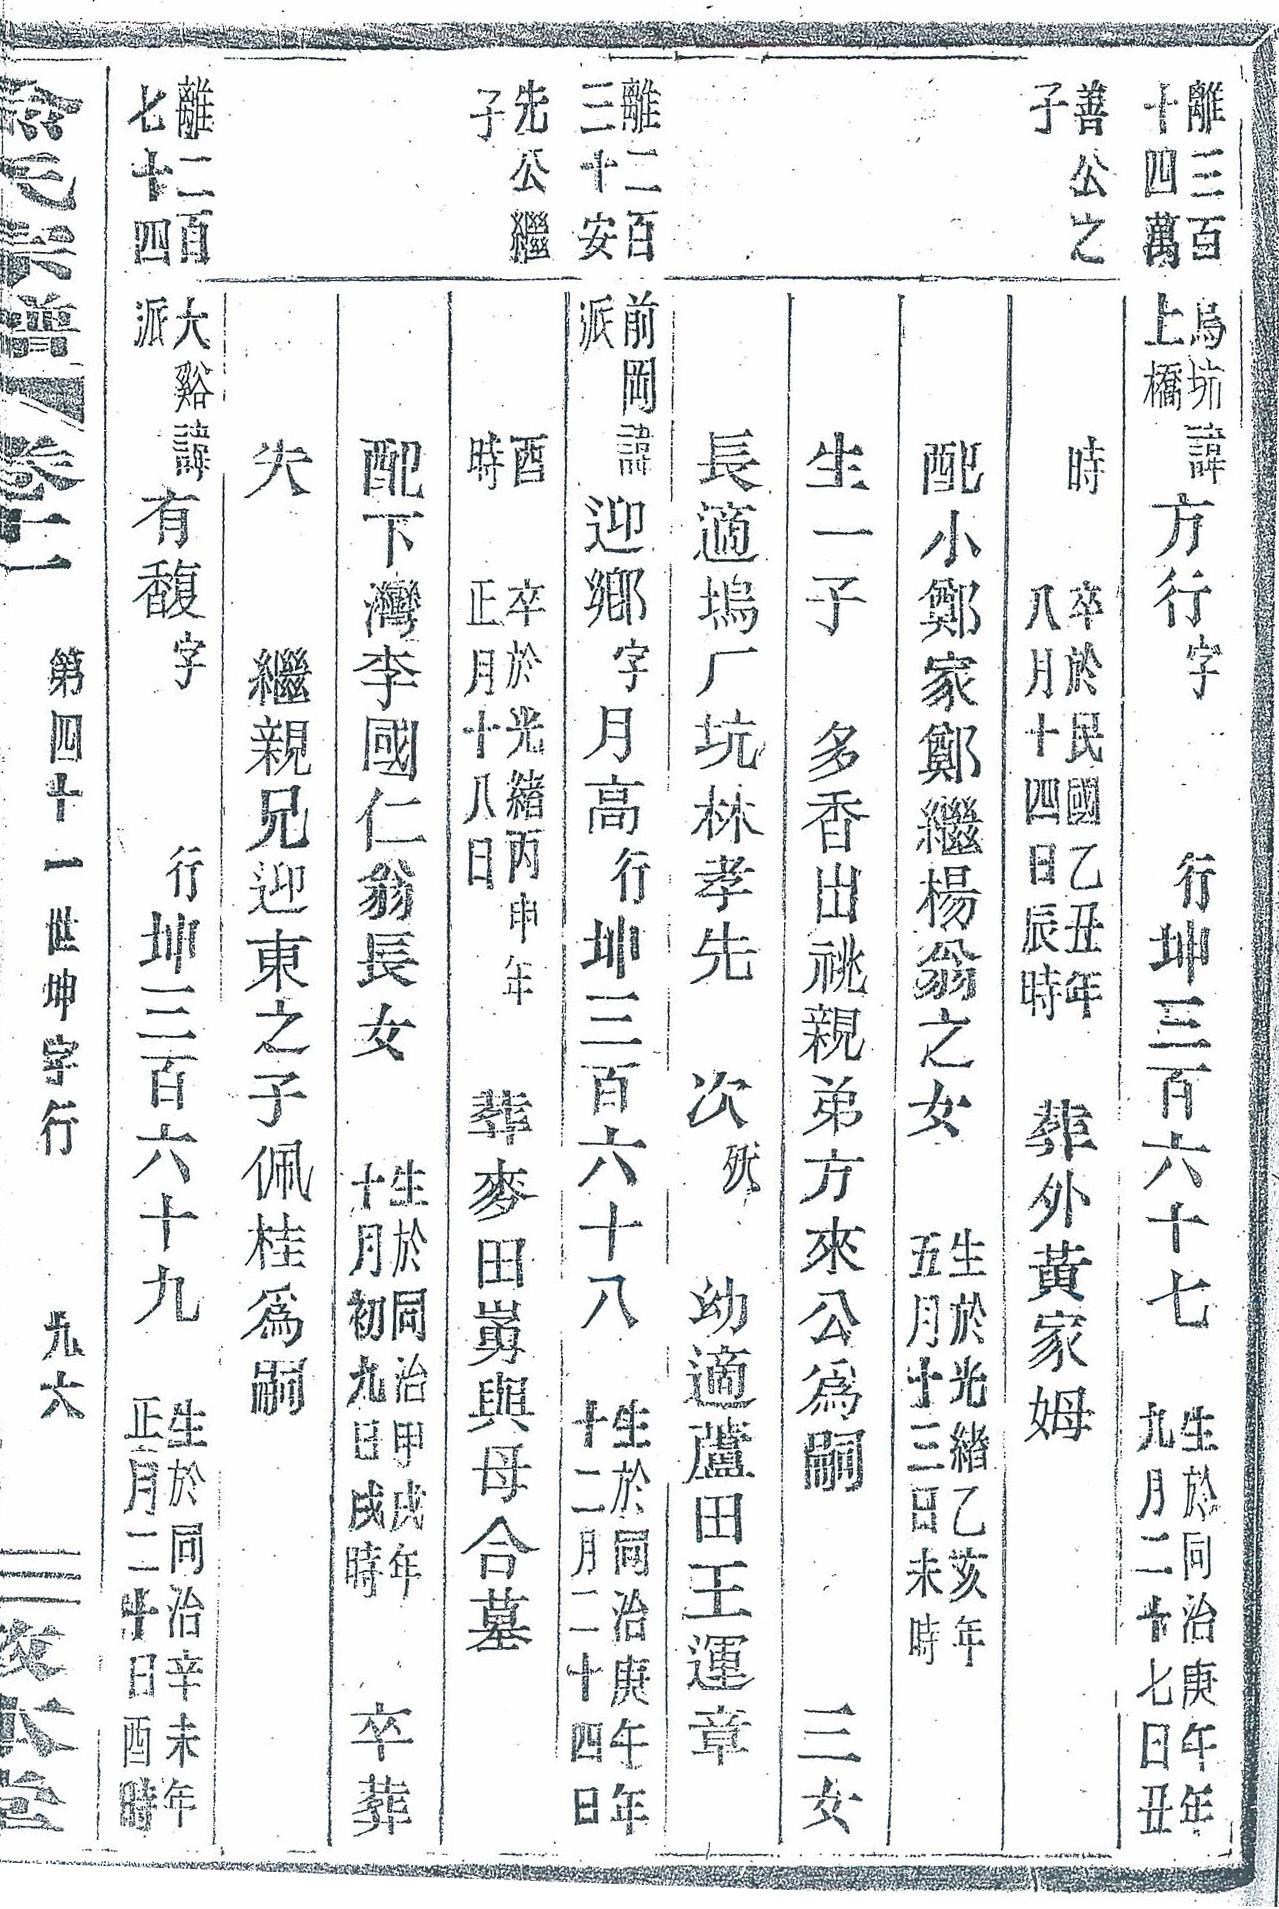 離三百
十四萬
善公之
子
烏坑
上橋
諱方行字 行坤三百六十七 生於同治庚午年
九月二十七日丑
時 卒於民國乙丑年
八月十四日辰時 葬外黃家姆
配小鄭家鄭繼楊翁之女 生於光緒乙亥年
五月十三日未時
生一子 多香出祧親弟方來公爲嗣 三女
長適塢厂坑林孝先 次殀 幼適蘆田王運章
離二百
三十安
先公繼
子
前岡
派
諱迎鄉字月高行坤三百六十八 生於同治庚午年
十二月二十四日
酉
時 卒於光緒丙申年
正月十八日 葬麥田嵩與母合墓
配下灣李國仁翁長女 生於同治甲戌年
十月初九日戌時 卒葬
失 繼親兄迎東之子佩桂爲嗣
離二百
七十四
大谿
派
諱有馥字 行坤三百六十九 生於同治辛未年
正月二十日酉時
氏宗譜 卷十二 第四十一世坤字行 九六 三敦本堂